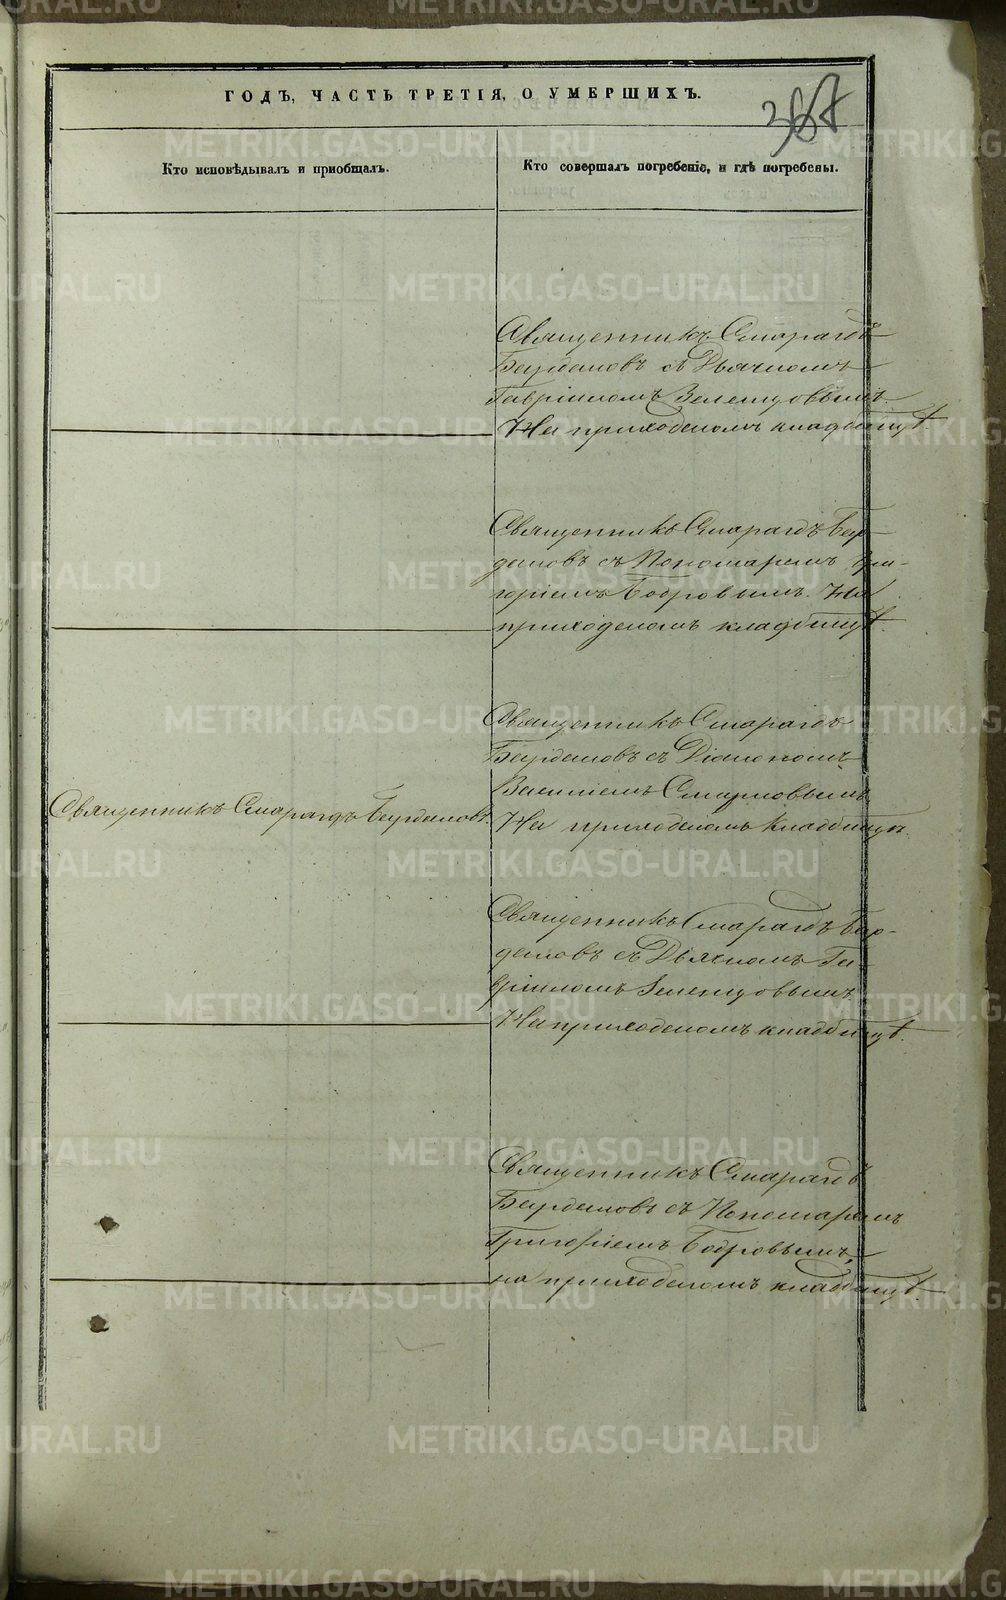 ГОДЪ, ЧАСТЬ ТРЕТІЯ, О УМЕРШИХЪ.
367
Кто исповѣдывалъ и приобщалъ.
Кто совершалъ погребеніе, и гдѣ погребены.
Священникъ Смарагдъ
Бурдаковъ съ Дьячкомъ
Гавріиломъ Зеленцовымъ
На приходскомъ кладбищѣ.
Священникъ Смарагдъ Бур-
даковъ съ Пономаремъ Гри-
горіемъ Бобровымъ. На
приходскомъ кладбищѣ.
Священникъ Смарагдъ
Бурдаковъ съ Діакономъ
Василіемъ Смирновымъ
На приходскомъ кладбищѣ.
Священникъ Смарагдъ Бурдаковъ.
Священникъ Смарагдъ Бур-
даковъ съ Дьячкомъ Га-
вріиломъ Зеленцовымъ
На приходскомъ кладбищѣ.
Священникъ Смарагдъ
Бурдаковъ съ Пономаремъ
Григоріемъ Бобровымъ,
на приходскомъ кладбищѣ.
METRIKI.GASO-URAL.RU